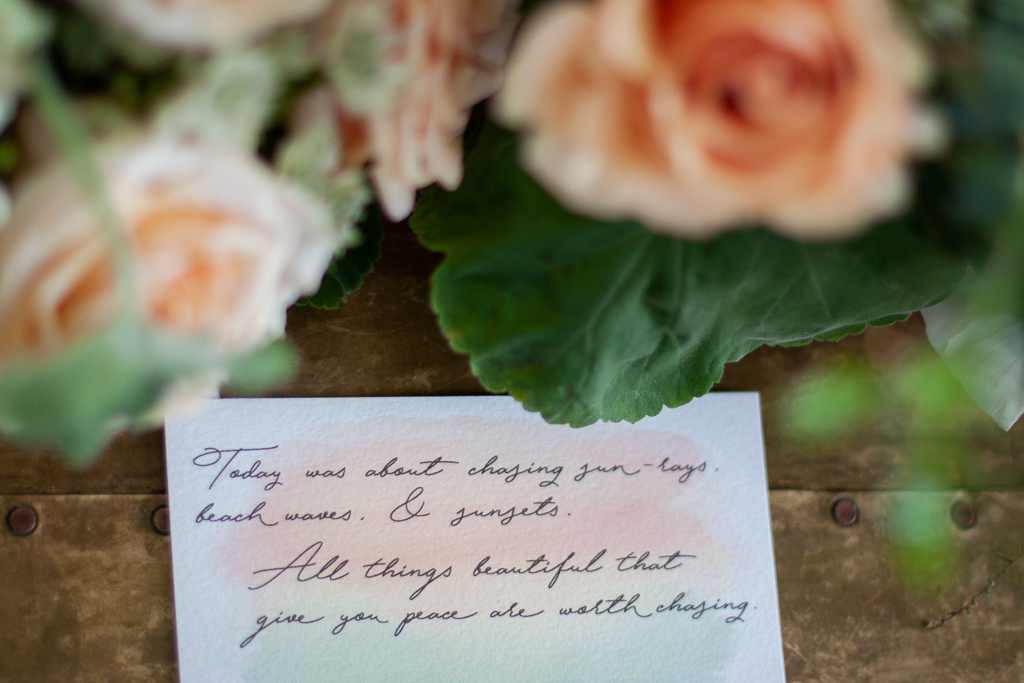 Today was about chasing sun-rays.
beach waves. & sunsets.
All things beautiful that
give you peace are worth chasing.